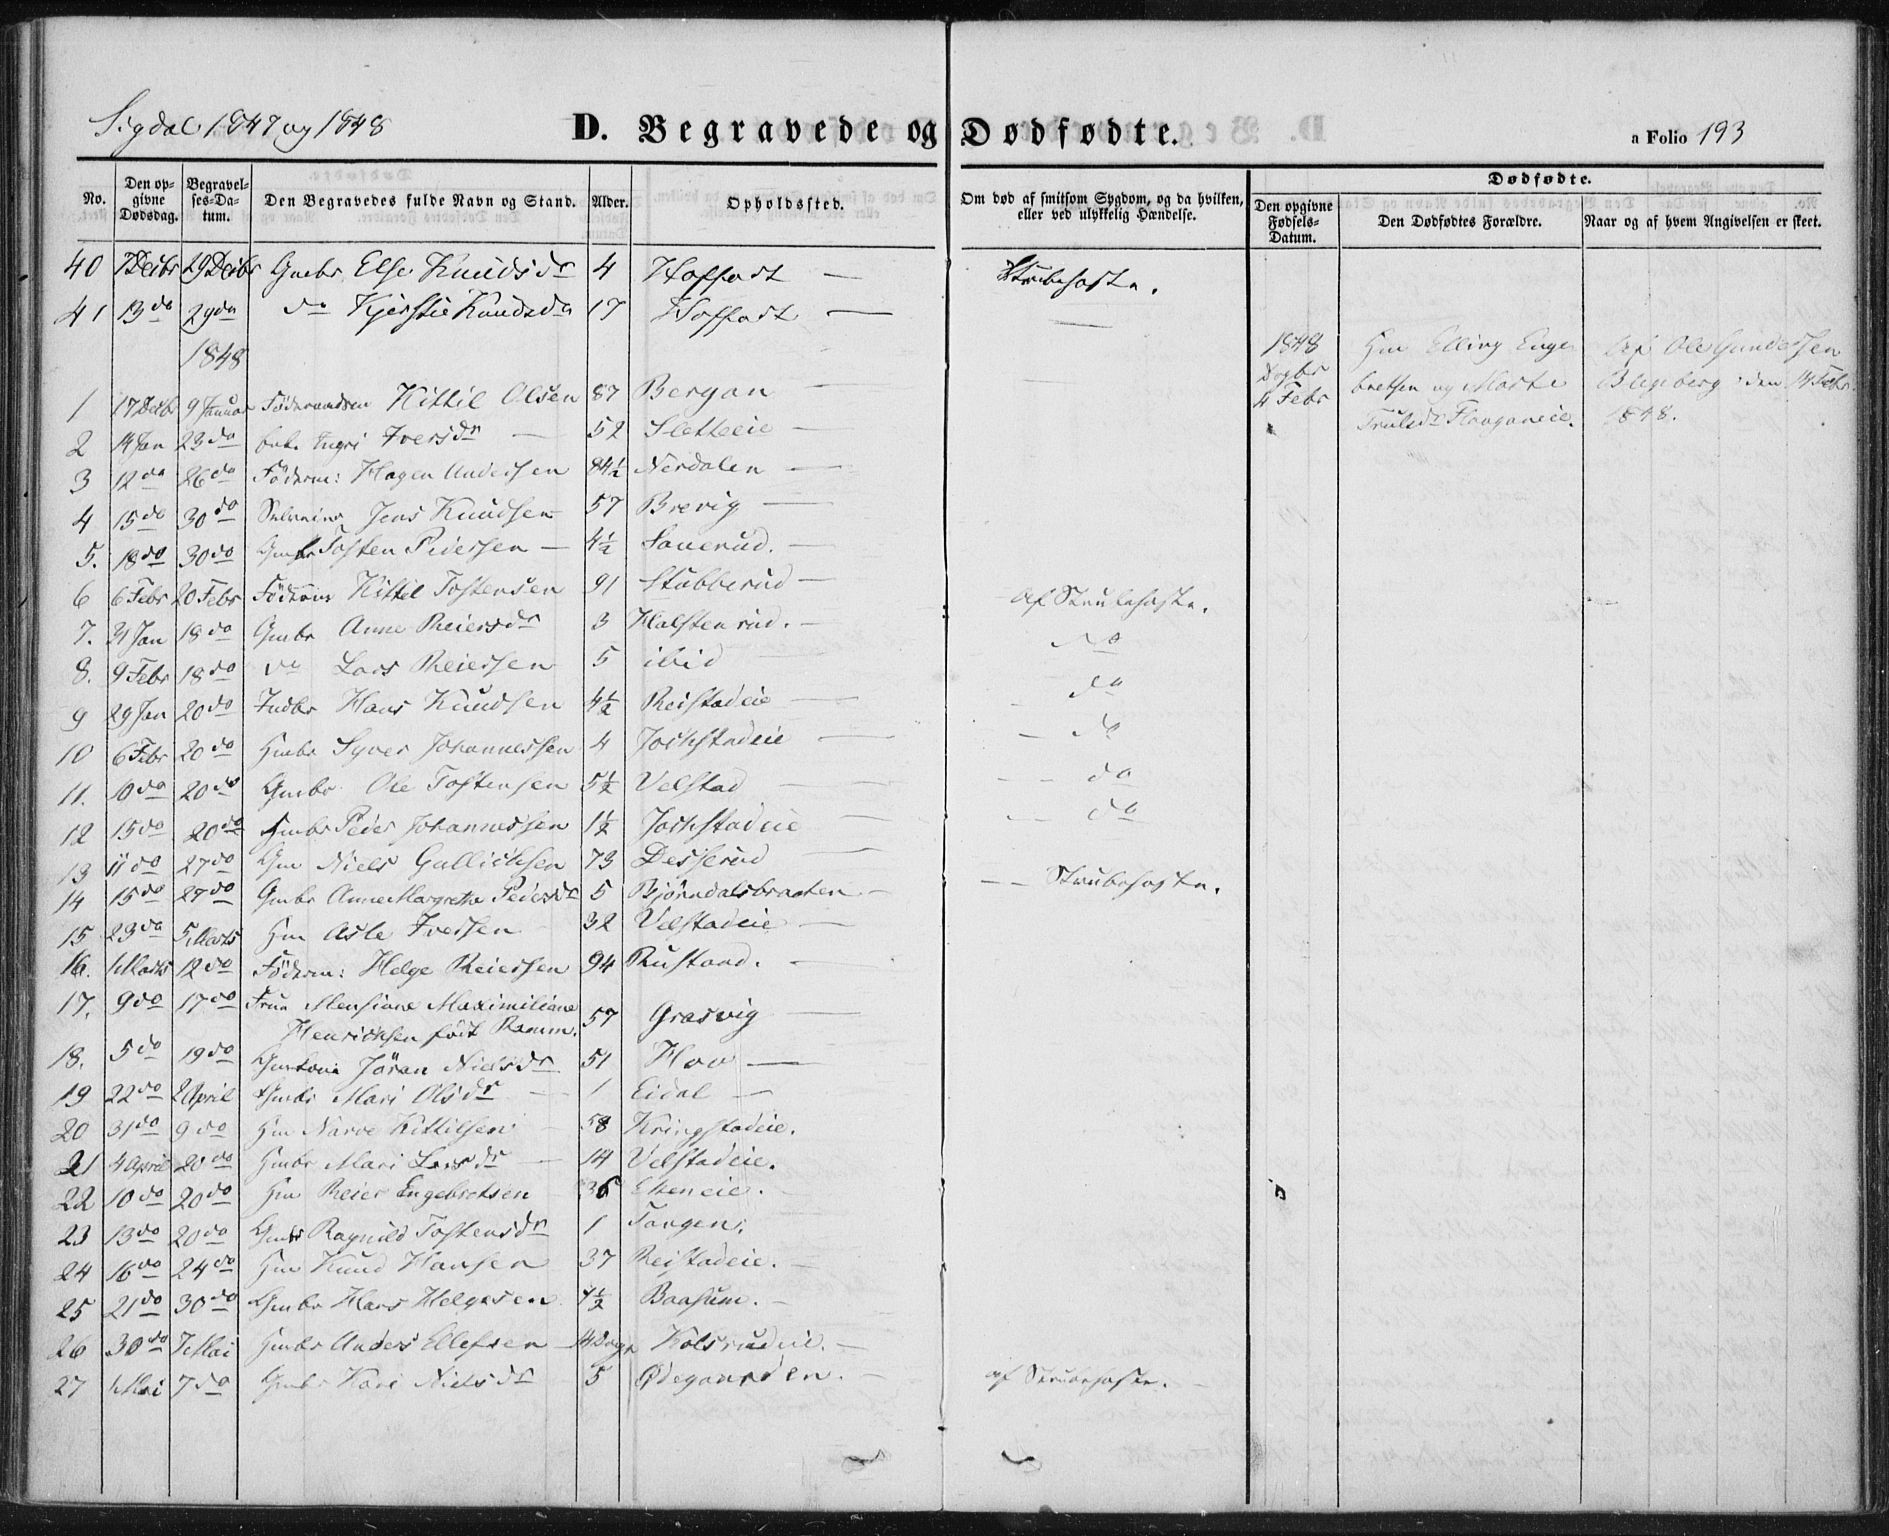 Sigdal 1847 og 1848
D. Begravede og Dødfødte.
a Folio 193
No. Den opgivne Dødsdag. Begravelses-Datum. Den Begravedes fulde Navn og Stand. Alder. Opholdssted. Om død af smitsom Sygdom, og da hvilken, eller ved ulykkelig Hændelse.
Dødfødte.
Den opgivne Fødsels-Datum. Den Dødfødtes Forældre. Naar og af hvem Angivelsen er skeet.
40 7 Decbr 29 Decbr Gmbr Else Knudsdr 4 Hoffart — Strubehoste.
41 13 do 29 do do Kjerstie Knudsdr 17 Hoffart —
1848
1 17 Decbr 9 Januar Föderaadsm Kittil Olsen 87 Bergan —
2 14 Jan 23 do Ingri Iversdr — 52 Sletteeie —
3 12 do 26 do Föderm: Hagen Andersen 84½ Nerdalen —
4 15 do 30 do Selveier Jens Knudsen 57 Brevig —
5. 18 do 30 do Gmbr Tosten Pedersen — 4½ Lauerud. —
6 6 Febr 20 Febr Föderm Kittil Tostensen 91 Stubberud —
7. 31 Jan 18 do Gmbr Anne Reiersdr 3 Halstenrud. — Af Strubehoste.
8. 9 Febr 18 do do Lars Reiersen 5 ibid do
9 29 Jan 20 do Indbr Hans Knudsen 4½ Reistadeie — do
10 6 Febr 20 do Hmbr Syver Johannessen 4 Jockstadeie — do
11. 10 do 20 do Gmbr Ole Tostensen 5½ Velstad — do
12 15 do 20 do Hmbr Peder Johannessen 1½ Jockstadeie — do
13 11 do 27 do Gm Niels Gullichsen 73 Desserud —
14 15 do 27 do Gmbr Anne Margrethe Pedersdr 5 Bjørndalsbraaten — Strubehoste.
15 23 do 5 Marts Hm Asle Iversen 32 Velstadeie —
16. 1 Marts 12 do Föderm: Helge Reiersen 94 Rustand. —
17. 9 do 17 do Frue Mensiane Maximiliane
Henrichsen født Ramm. 57 Grasvig —
18. 5 do 19 do Gmkone Jöran Nielsdr 51 Hovo —
19 22 do 2 April Gmbr Mari Olsdr — 1 Eidal —
20 31 do 9 do Hm Narve Kittilsen 58 Kringstadeie.
21 4 April 20 do Hmbr Mari Larsdr — 14 Velstadeie.
22 10 do 20 do Hm Reier Engebretsen 36 Ekeneie. —
23 13 do 20 do Gmbr Ragnild Tostensdr 1 Tangen.
24 16 do 24 do Hm Knud Hansen 37 Reistadeie. —
25 21 do 30 do Gmbr Hans Helgesen ½ Baasum. —
26 30 do 7 Mai Hmbr Anders Ellefsen 14 Dage Kolsrudeie. —
27 1 Mai 7 do Gmbr Kari Nielsdr 5 Ødegaarden. — af Strubehoste. —
1848 Hm Elling Enge- Af Ole Gundersen
Døgbr bretsen og Marte Blegeberg den 14 Febr
4 Febr Trulsdr 1848.